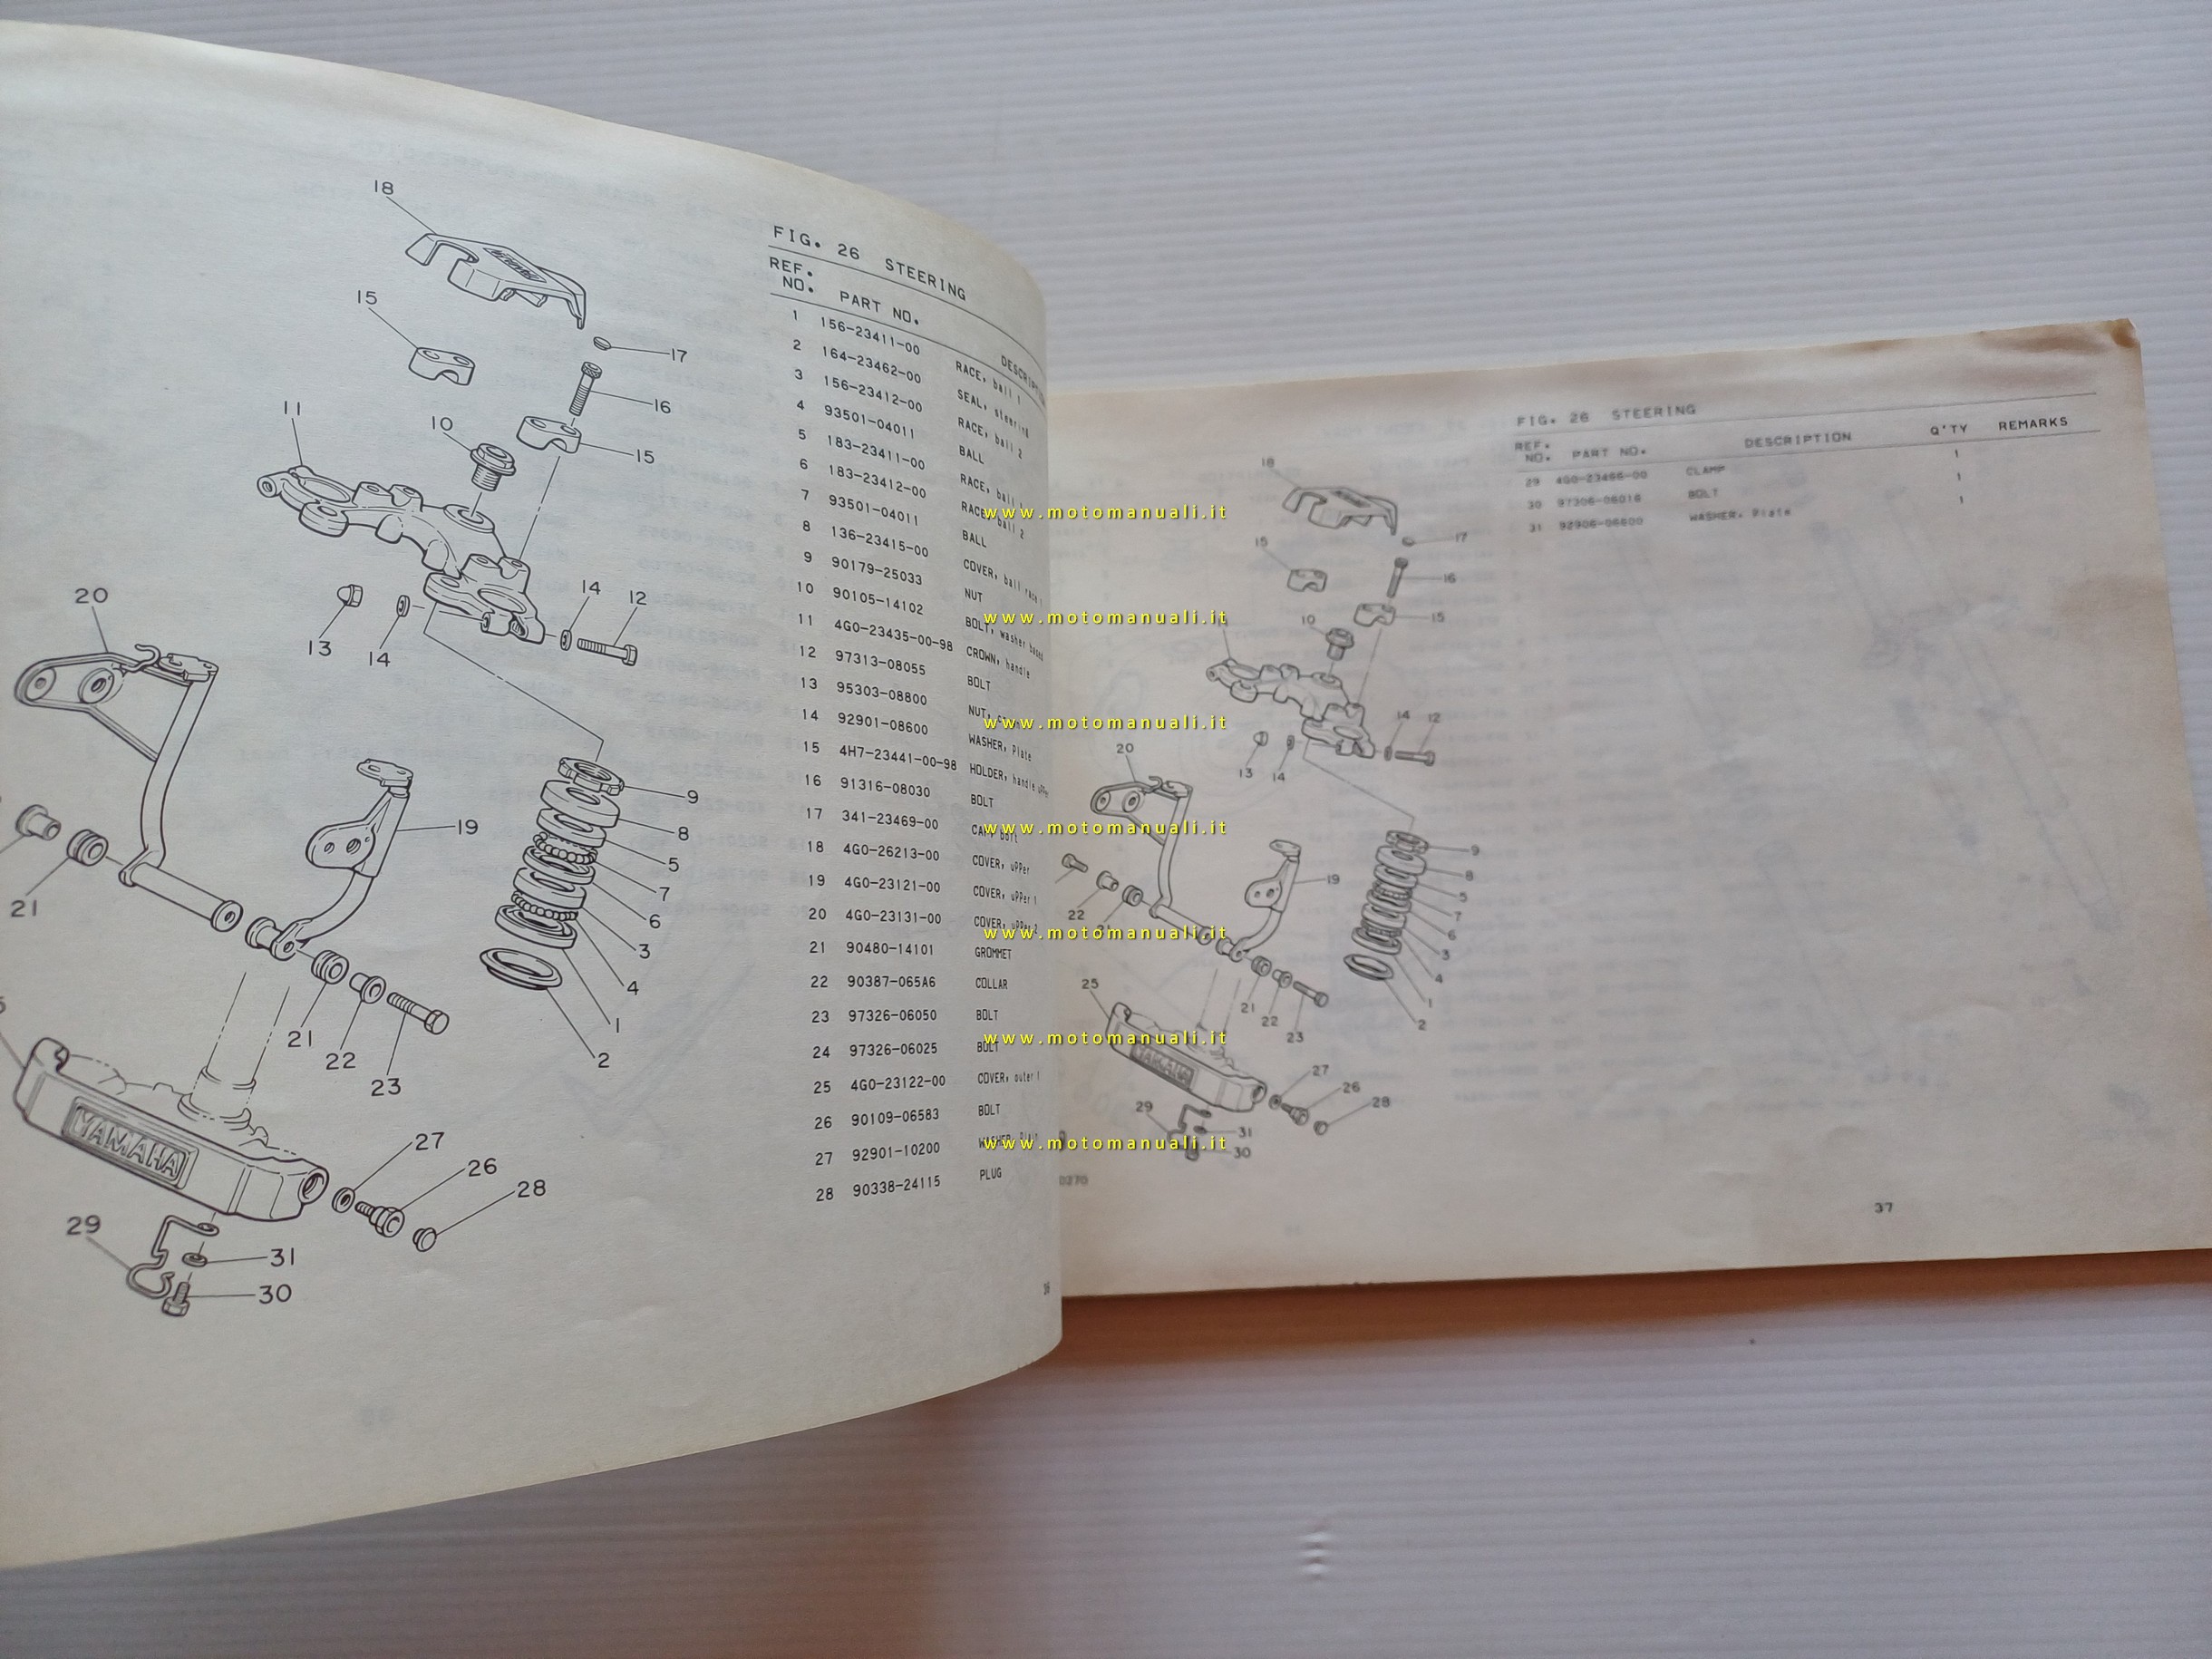 FIG. 26 STEERING
REF. NO. PART NO. DESCRIPTION
1 156-23411-00 RACE, ball 1
2 164-23462-00 SEAL, steering
3 156-23412-00 RACE, ball 2
4 93501-04011 BALL
5 183-23411-00 RACE, ball
6 183-23412-00 RACE, ball 2
7 93501-04011 BALL
8 136-23415-00 COVER, ball race 1
9 90179-25033 NUT
10 90105-14102 BOLT, washer based
11 4G0-23435-00-98 CROWN, handle
12 97313-08055 BOLT
13 95303-08800 NUT,
14 92901-08600 WASHER, Plate
15 4H7-23441-00-98 HOLDER, handle uPPer
16 91316-08030 BOLT
17 341-23469-00 CAP, bolt
18 4G0-26213-00 COVER, uPPer
19 4G0-23121-00 COVER, uPPer 1
20 4G0-23131-00 COVER, uPPer 2
21 90480-14101 GROMMET
22 90387-065A6 COLLAR
23 97326-06050 BOLT
24 97326-06025 BOLT
25 4G0-23122-00 COVER, outer 1
26 90109-06583 BOLT
27 92901-10200 WASHER,
28 90338-24115 PLUG
18
15
17
16
10
15
11
14
12
13
14
20
9
8
19
5
7
6
3
4
1
2
21
21
22
23
YAMAHA
27
26
28
29
31
30
FIG. 26 STEERING
REF. NO. PART NO. DESCRIPTION Q'TY REMARKS
29 4G0-23466-00 CLAMP 1
30 97306-06016 BOLT 1
31 92906-06600 WASHER, Plate 1
18
17
15
16
10
15
14
12
13
14
20
9
8
19
5
7
6
3
4
1
2
22
21
21
22
23
25
YAMAHA
27
26
28
29
31
30
37
www.motomanuali.it
www.motomanuali.it
www.motomanuali.it
www.motomanuali.it
www.motomanuali.it
www.motomanuali.it
www.motomanuali.it